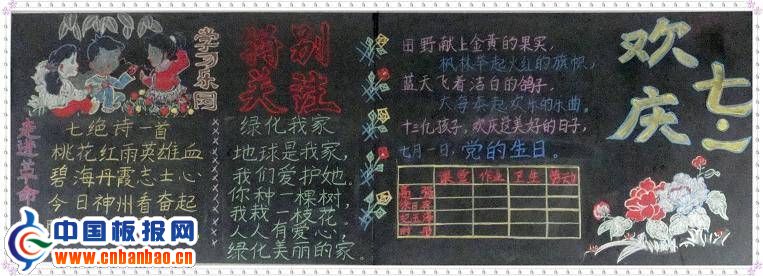 学习乐园
走进革命
七绝诗一首
桃花红雨英雄血
碧海丹霞志士心
今日神州看奋起
特别
关注
绿化我家
地球是我家，
我们爱护她。
你种一棵树，
我栽一枝花。
人人有爱心，
绿化美丽的家。
田野献上金黄的果实，
枫林举起火红的旗帜，
蓝天飞着洁白的鸽子，
大海奏起欢乐的乐曲。
十三亿孩子，欢庆这美好的日子，
七月一日，党的生日。
课堂 作业 卫生 劳动
欢庆
七·一
中国板报网
www.cnbanbao.cn